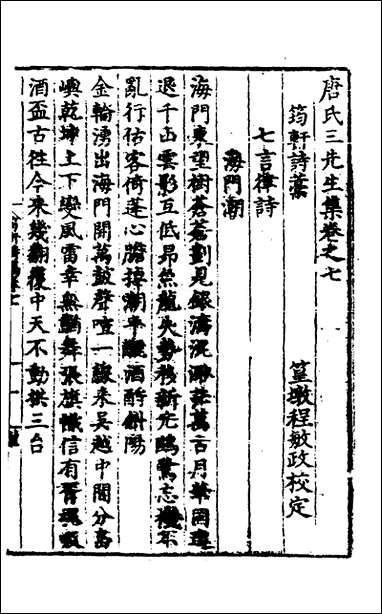 唐氏三先生集卷之七
筠軒詩藁 篁墩程敏政校定
七言律詩
海門潮
海門東望樹蒼蒼劃見銀濤混渺茫萬古月華同進
退千山雲影互低昂魚龍失勢移新先鷗鷺忘機不
亂行估客倚蓬心膽掉潮平釃酒酹斜陽
金輪湧出海門開萬鼓聲喧一線來吳越中間分畜
嶼乾坤上下變風雷幸無鼓舞張旗幟信有胥魂
酒盃古往今來幾翻覆中天不動拱三台